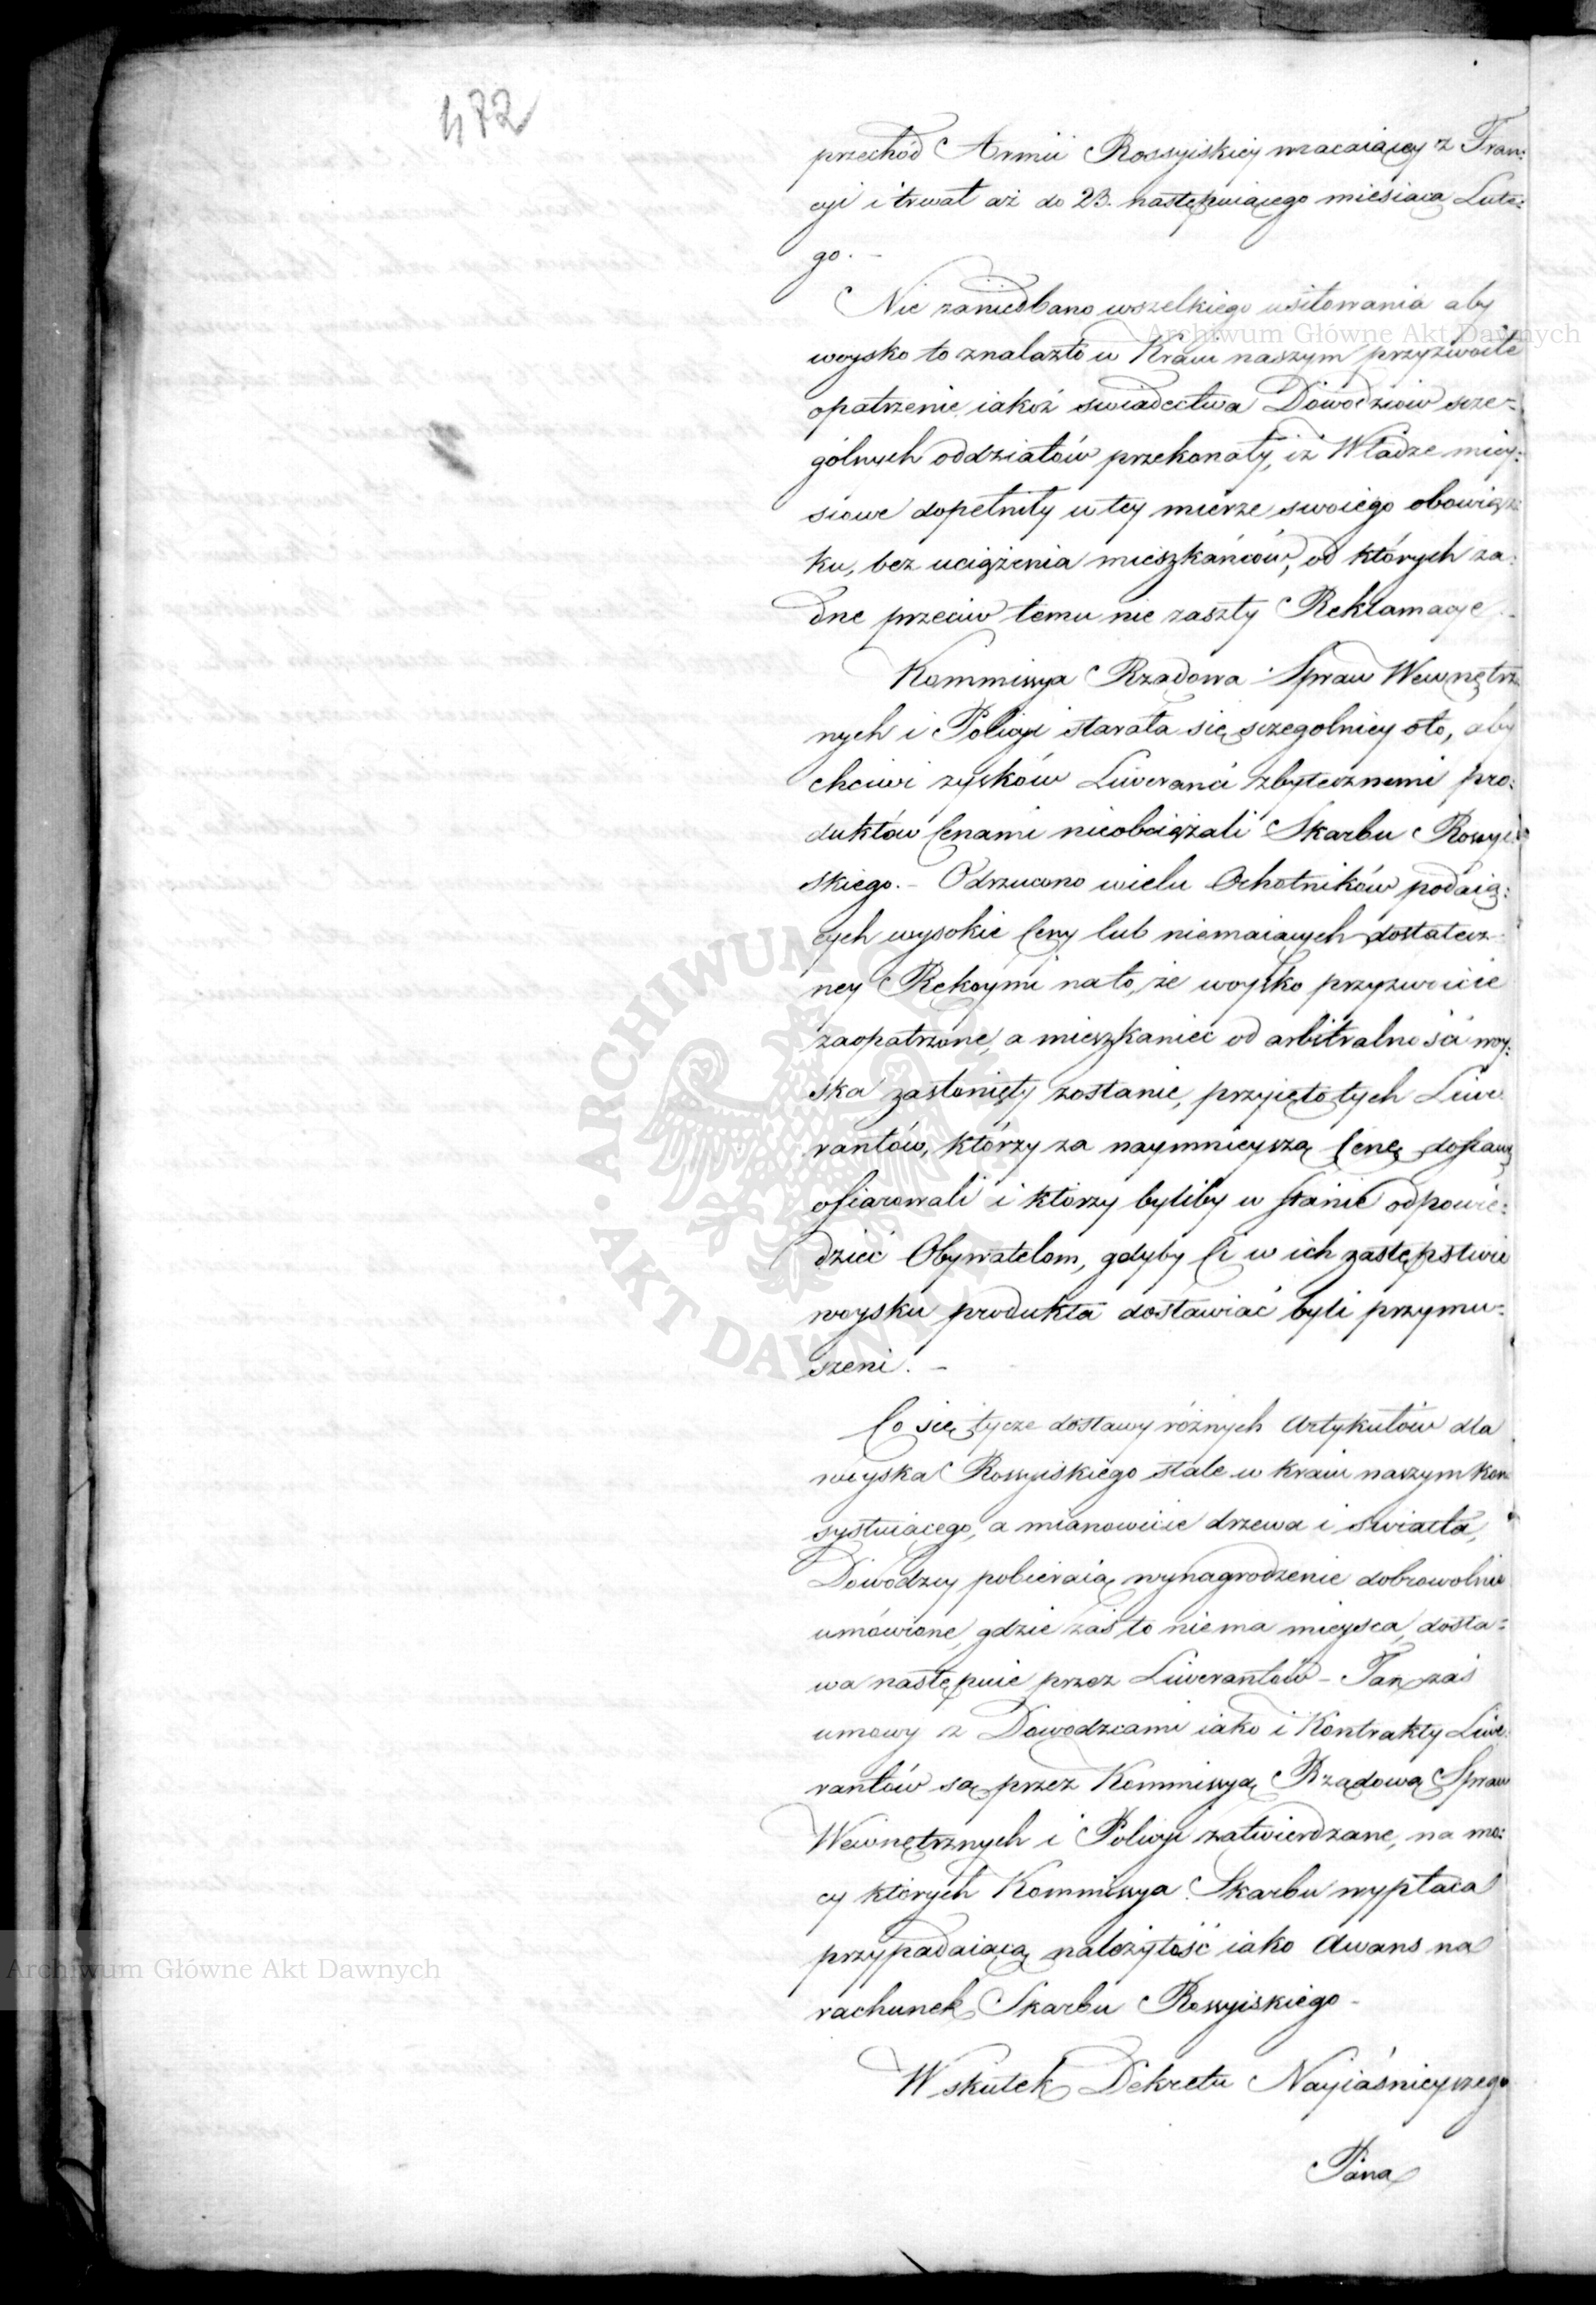 472
przechód Armii Rossyiskiey wracaiącey z Fran:
cyi i trwał aż do 23. następuiącego miesiąca Lute:
go. –
Nie zaniedbano wszelkiego usiłowania aby
woysko to znalazło w Kraiu naszym przyzwoite
opatrzenie, iakoż swiadectwa Dowodzców scze-
gólnych oddziałów przekonały, iż Władze miey:
scowe dopełniły w tey mierze swoiego obowiąz:
ku, bez uciążenia mieszkańców, od których ża:
dne przeciw temu nie zaszły Reklamacye. –
Kommissya Rządowa Spraw Wewnętrz:
nych i Policyi starała się sczegolniey oto, aby
chciwi zysków Liweranci zbytecznemi pro:
duktów Cenami nieobciążali Skarbu Rossyi:
skiego. – Odrzucono wielu Ochotników podaią:
cych wysokie Ceny lub niemaiących dostatecz
ney Rękoymi na to, że woysko przyzwoicie
zaopatrzone, a mieszkaniec od arbitralności woy:
ska zasłonięty zostanie, przyięto tych Liwe
rantów, którzy za naymnieyszą Cenę dostawę
ofiarowali i którzy byliby w stanie odpowie:
dzieć Obywatelom, gdyby Ci w ich zastępstwie
woysku produkta dostawiać byli przymu:
szeni. –
Co się tycze dostawy różnych Artykułów dla
woyska Rossyiskiego stale w kraiu naszym kon
systuiącego, a mianowicie drzewa i światła,
Dowodzcy pobieraią wynagrodzenie dobrowolnie
umówione, gdzie zaś to niema mieysca, dosta:
wa następuie przez Liwerantów – Tak zaś
umowy z Dowodzcami iako i Kontrakty Liwe
rantów są przez Kommissyą Rządową Spraw
Wewnętrznych i Policyi zatwierdzane, na mo:
cy których Kommissya Skarbu wypłaca
przypadaiącą należytość iako Awans na
rachunek Skarbu Rossyiskiego –
W skutek Dekretu Nayiaśnieyszego
Pana
Archiwum Główne Akt Dawnych
Archiwum Główne Akt Dawnych
ARCHIWUM GŁÓWNE AKT DAWNYCH